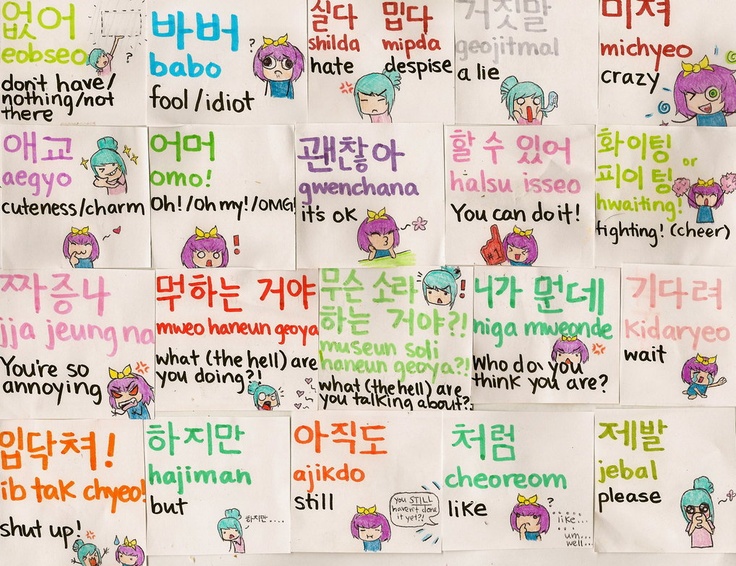 없어
eobseo
don't have/
nothing/not
there
?
바버
babo
fool/idiot
?
실다 밉다
shilda mipda
hate despise
거짓말
geojitmal
a lie
미쳐
michyeo
crazy
애교
aegyo
cuteness/charm
어머
omo!
Oh!/Oh my!/OMG!
!
괜찮아
gwenchana
it's ok
할 수 있어
halsu isseo
You can do it!
화이팅 or
피이팅
hwaiting!
fighting! (cheer)
짜증나
jja jeung na
You're so
annoying
뭐하는 거야
mweo haneun geoya
what (the hell) are
you doing?!
무슨 소리
하는 거야?!
museun soli
haneun geoya?!
what (the hell) are
you talking about?!
!
니가 뭔데
niga mweonde
Who do you
think you are?
기다려
kidaryeo
wait
입닥쳐!
ib tak chyeo!
shut up!
하지만
hajiman
but
하지만....
아직도
ajikdo
still
you STILL
haven't done
it yet?!
처럼
cheoreom
like
?
like...
um...
well...
제발
jebal
please